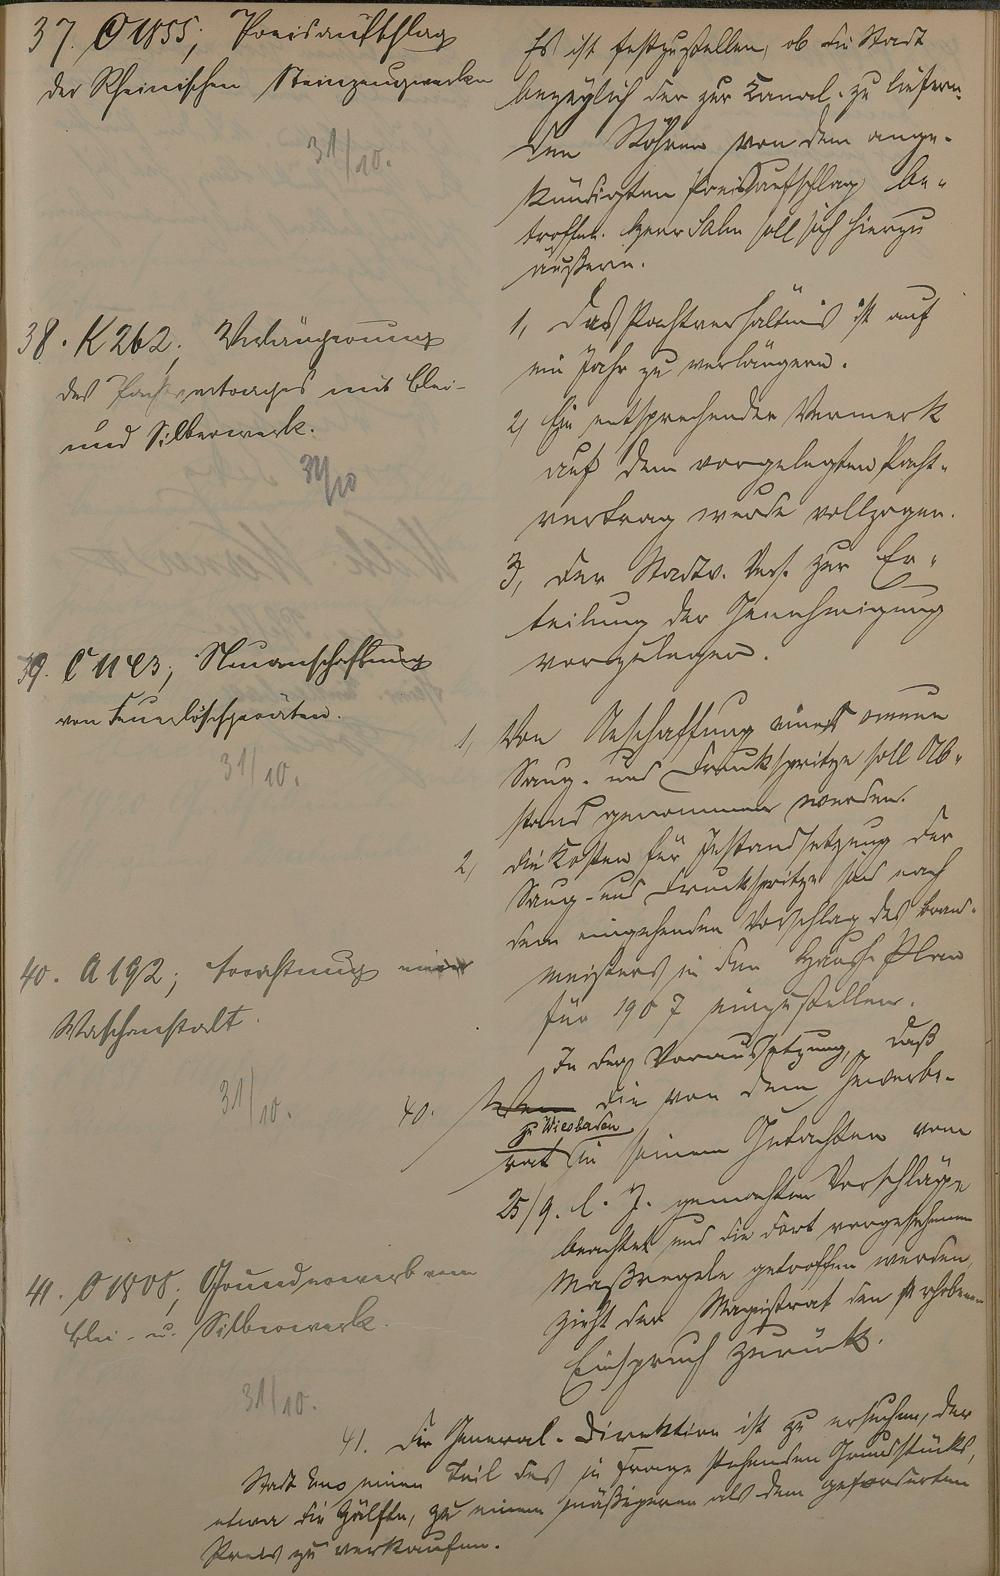 37. C 1855; Preisaufschlag
der Rheinischen Steinzeugwerke
31/10.
Es ist festzustellen, ob die Stadt
bezüglich der zur Kanal. zu liefern-
den Röhren von dem ange-
kündigten Preisaufschlag be-
troffen. Herr Salm soll sich hierzu
äußern.
38. K 262; Verlängerung
des Pachtvertrages mit Blei-
und Silberwerk.
31/10
1, Das Pachtverhältnis ist auf
ein Jahr zu verlängern.
2, Ein entsprechender Vermerk
auf dem vorgelegten Pacht-
vertrag wurde vollzogen.
3, Der Stadtv. Vers. zur Er-
teilung der Genehmigung
vorzulegen.
39. C 1143; Neuanschaffung
von Feuerlöschgeräten.
31/10.
1, Von Anschaffung einer neuen
Saug- und Druckspritze soll Ab-
stand genommen werden.
2, Die Kosten für Instandsetzung der
Saug- und Druckspritze sind nach
dem eingehenden Vorschlag des Brand-
meisters in den Haush. Plan
für 1907 einzustellen.
40. A 192; Errichtung einer
Waschanstalt.
31/10.
40. In der Voraussetzung, daß
die von dem Gewerbe-
rat zu Wiesbaden in seinem Gutachten vom
25/9. l. J. gemachten Vorschläge
beachtet und die dort vorgesehenen
Maßregeln getroffen werden,
zieht der Magistrat den erhobenen
Einspruch zurück.
41. C 1808; Grunderwerb vom
Blei- u. Silberwerk.
31/10.
41. Die General-Direktion ist zu ersuchen, der
Stadt nur einen Teil des in Frage stehenden Grundstücks,
etwa die Hälfte, zu einem mäßigeren als dem geforderten
Preis zu verkaufen.